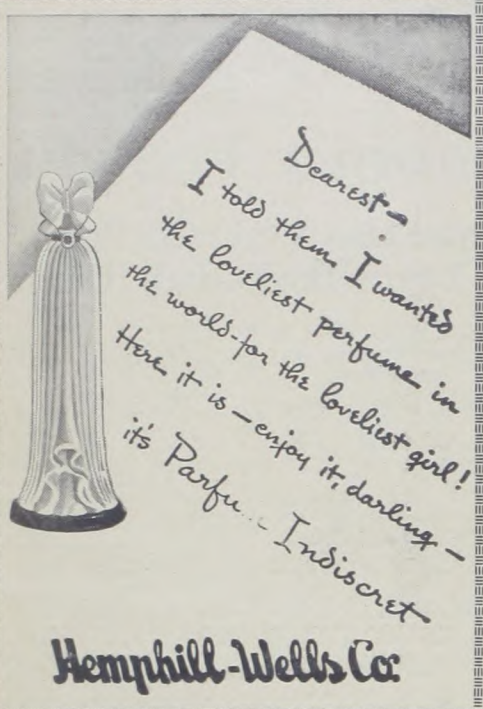 Dearest-
I told them I wanted
the loveliest perfume in
the world-for the loveliest girl!
Here it is - enjoy it, darling -
it's Indiscret
Hemphill-Wells Co.